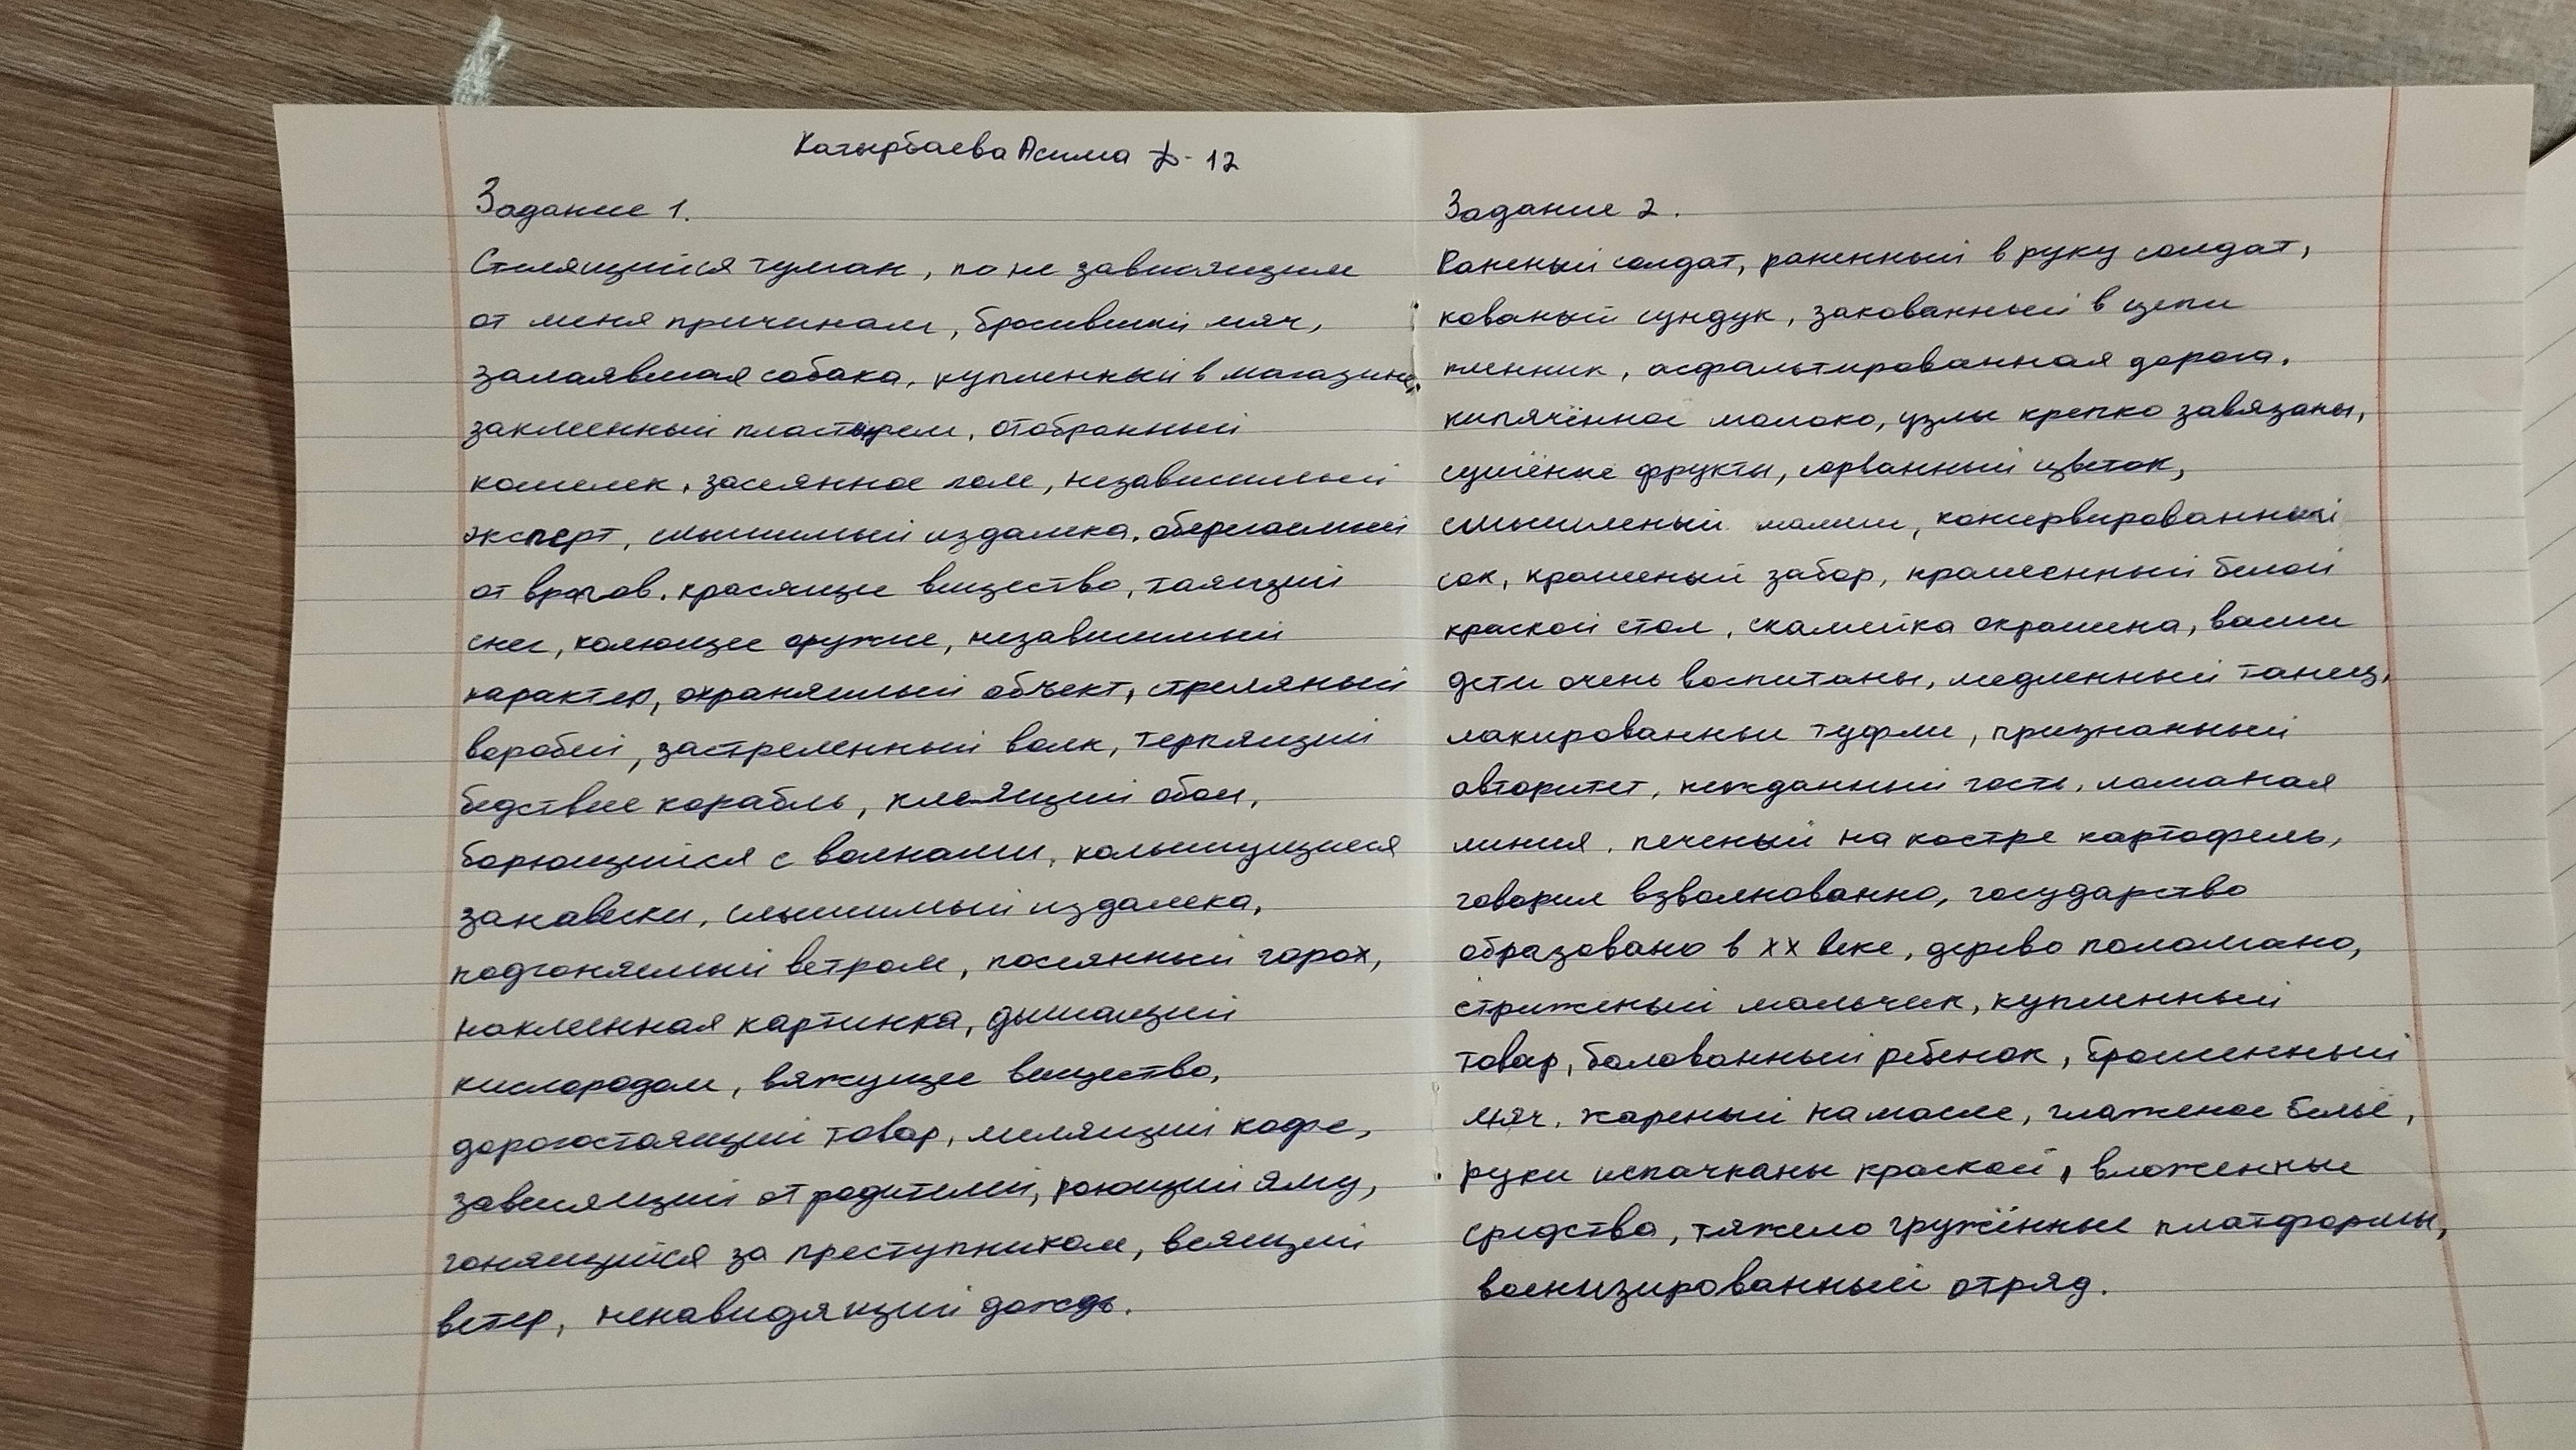 Катырбаева Асима Ф-12
Задание 1.
Стелящийся туман, по не зависящим
от меня причинам, бросивший мяч,
залаявшая собака, купленный в магазине,
заклеенный пластырем, отобранный
кошелек, засеянное поле, независимый
эксперт, слышимый издалека, оберегаемый
от врагов, красящее вещество, таящий
снег, колющее оружие, независимый
характер, охраняемый объект, стреляный
воробей, застреленный волк, терпящий
бедствие корабль, клеящий обои,
борющийся с волнами, колышущиеся
занавески, слышимый издалека,
подгоняемый ветром, посеянный горох,
наклеенная картинка, дышащий
кислородом, вяжущее вещество,
дорогостоящий товар, мелящий кофе,
зависящий от родителей, роющий яму,
гонящийся за преступником, веящий
ветер, ненавидящий дождь.
Задание 2.
Раненый солдат, раненный в руку солдат,
кованый сундук, закованный в цепи
пленник, асфальтированная дорога,
кипячённое молоко, узлы крепко завязаны,
сушёные фрукты, сорванный цветок,
смышленый малыш, консервированный
сок, крашеный забор, крашенный белой
краской стол, скамейка окрашена, ваши
дети очень воспитаны, медленный танец,
лакированные туфли, признанный
авторитет, нежданный гость, ломаная
линия, печеный на костре картофель,
говорил взволнованно, государство
образовано в XX веке, дерево поломано,
стриженый мальчик, купленный
товар, балованный ребенок, брошенный
мяч, жареный на масле, глаженое бельё,
руки испачканы краской, вложенные
средства, тяжело гружённые платформы,
военизированный отряд.